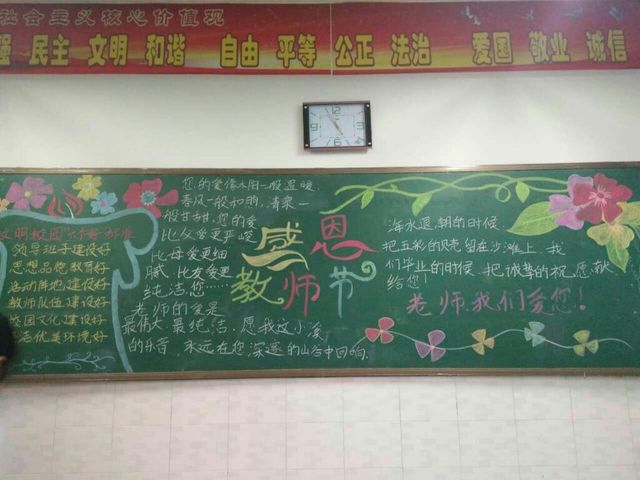 社会主义核心价值观
强 民主 文明 和谐 自由 平等 公正 法治 爱国 敬业 诚信
文明校园六好标准
领导班子建设好
思想品德教育好
活动阵地建设好
教师队伍建设好
校园文化建设好
生活优美环境好
您的爱像太阳一般温暖,
春风一般和煦,清泉一
般甘甜,您的爱
比父爱更严峻
比母爱更细
腻,比友爱更
纯洁您……
老师的爱是
最伟大,最纯洁,愿我这小溪
的乐音,永远在您深邃的山谷中回响.
感恩
教师节
海水退潮的时候
把五彩的贝壳留在沙滩上.我
们毕业的时候.把诚挚的祝愿献
给您!
老师.我们爱您!